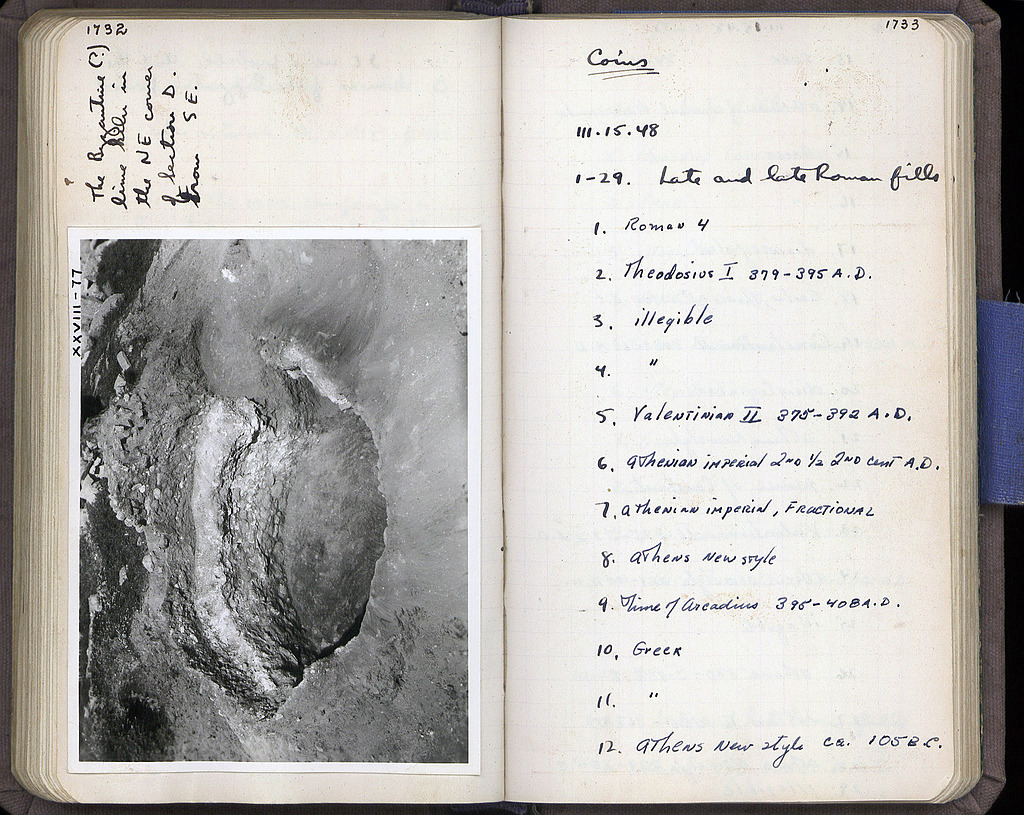 1732
The Byzantine (?)
lime kiln in
the NE corner
of Section D.
From SE.
XXVIII-77
1733
Coins
III.15.48
1-29. Late and late Roman fills
1. Roman 4
2. Theodosius I 379-395 A.D.
3. illegible
4. "
5. Valentinian II 375-392 A.D.
6. Athenian imperial 2nd ½ 2nd cent A.D.
7. Athenian imperial, Fractional
8. Athens New style
9. Time of Arcadius 395-408 A.D.
10. Greek
11. "
12. Athens New style ca. 105 B.C.